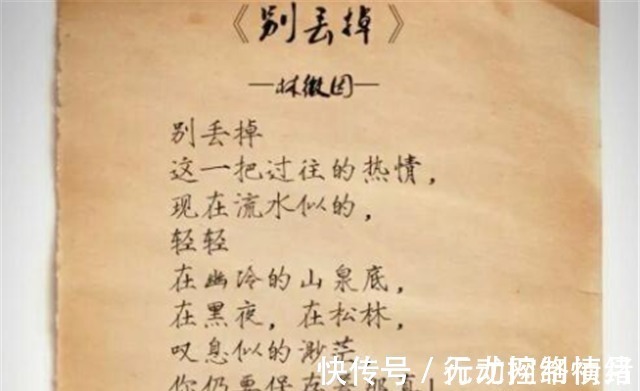 《别丢掉》
—林徽因—
别丢掉
这一把过往的热情，
现在流水似的，
轻轻
在幽冷的山泉底，
在黑夜，在松林，
叹息似的渺茫，
你仍要保存
快传号 /